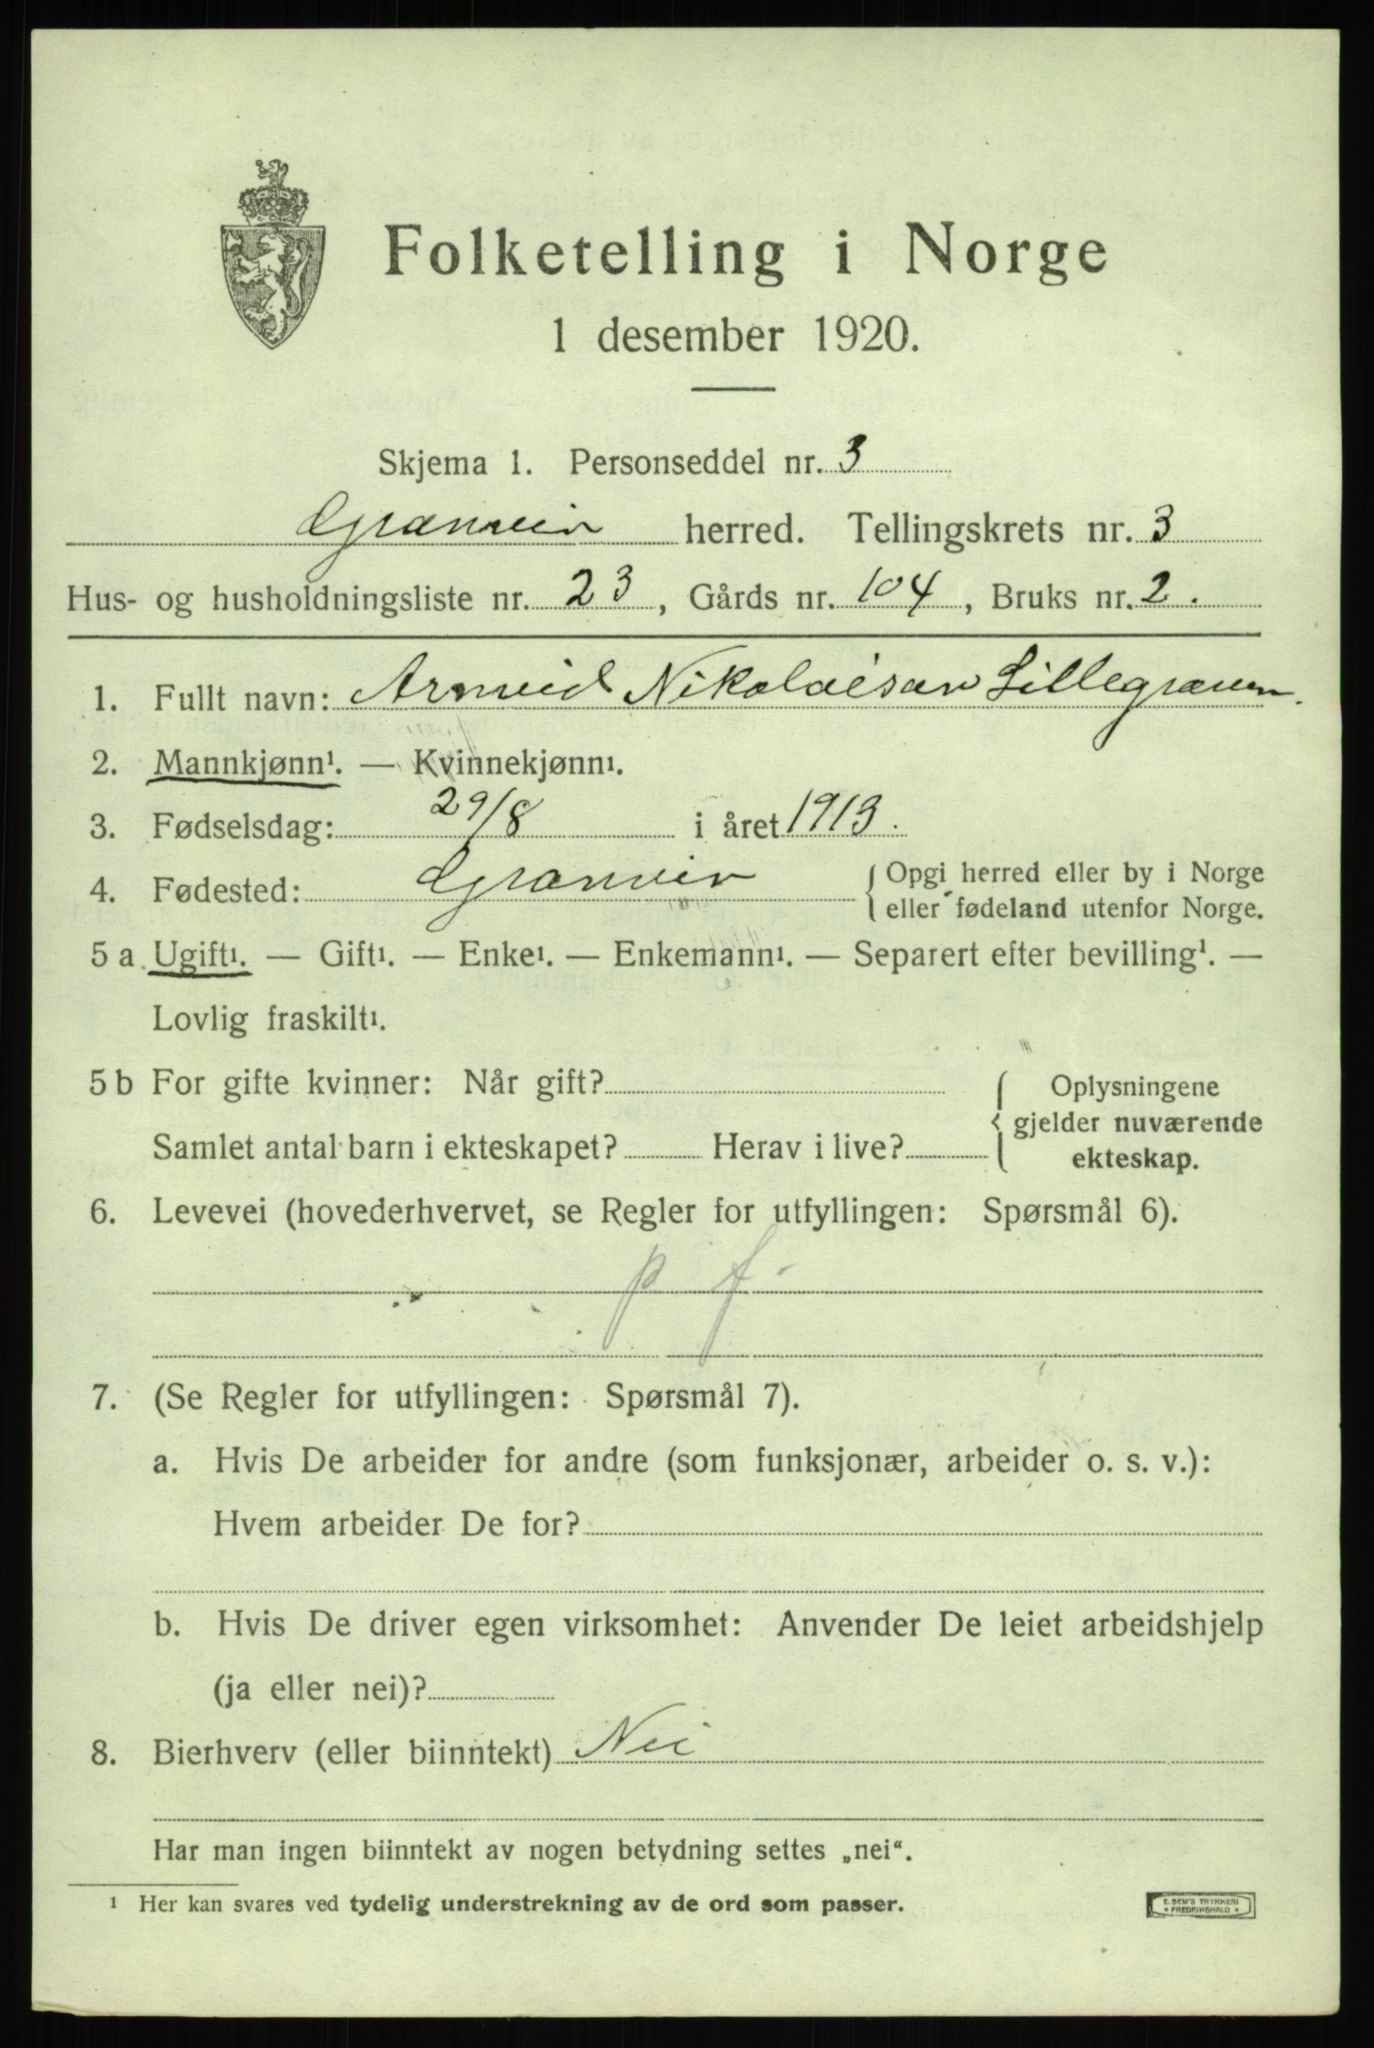 Folketelling i Norge
1 desember 1920.
Skjema 1. Personseddel nr. 3
herred. Tellingskrets nr. 3
Hus- og husholdningsliste nr. 23, Gårds nr. 104, Bruks nr. 2.
1. Fullt navn: Nikolaisen
2. Mannkjønn¹. — Kvinnekjønn¹.
3. Fødselsdag: 29/8 i året 1913.
4. Fødested: Opgi herred eller by i Norge
eller fødeland utenfor Norge.
5 a Ugift¹. — Gift¹. — Enke¹. — Enkemann¹. — Separert efter bevilling¹. —
Lovlig fraskilt¹.
5 b For gifte kvinner: Når gift? Oplysningene
gjelder nuværende
Samlet antal barn i ekteskapet? Herav i live? ekteskap.
6. Levevei (hovederhvervet, se Regler for utfyllingen: Spørsmål 6).
p f
7. (Se Regler for utfyllingen: Spørsmål 7).
a. Hvis De arbeider for andre (som funksjonær, arbeider o. s. v.):
Hvem arbeider De for?
b. Hvis De driver egen virksomhet: Anvender De leiet arbeidshjelp
(ja eller nei)?
8. Bierhverv (eller biinntekt) Nei
Har man ingen biinntekt av nogen betydning settes „nei“.
¹ Her kan svares ved tydelig understrekning av de ord som passer.
E. SEM'S TRYKKERI
* FREDRIKSHALD *